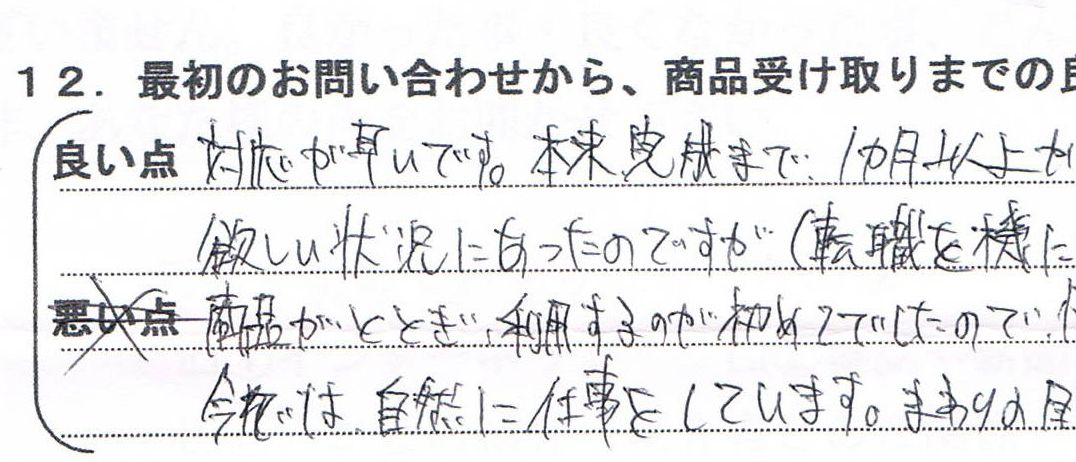 12. 最初のお問い合わせから、商品受け取りまでの良
良い点 対応が早いです。本来完成まで、1カ月以上か
欲しい状況にあったのですが(転職を機に
悪い点 商品がとどき、利用するのが初めてでしたので、
今では、自然に仕事をしています。まわりの